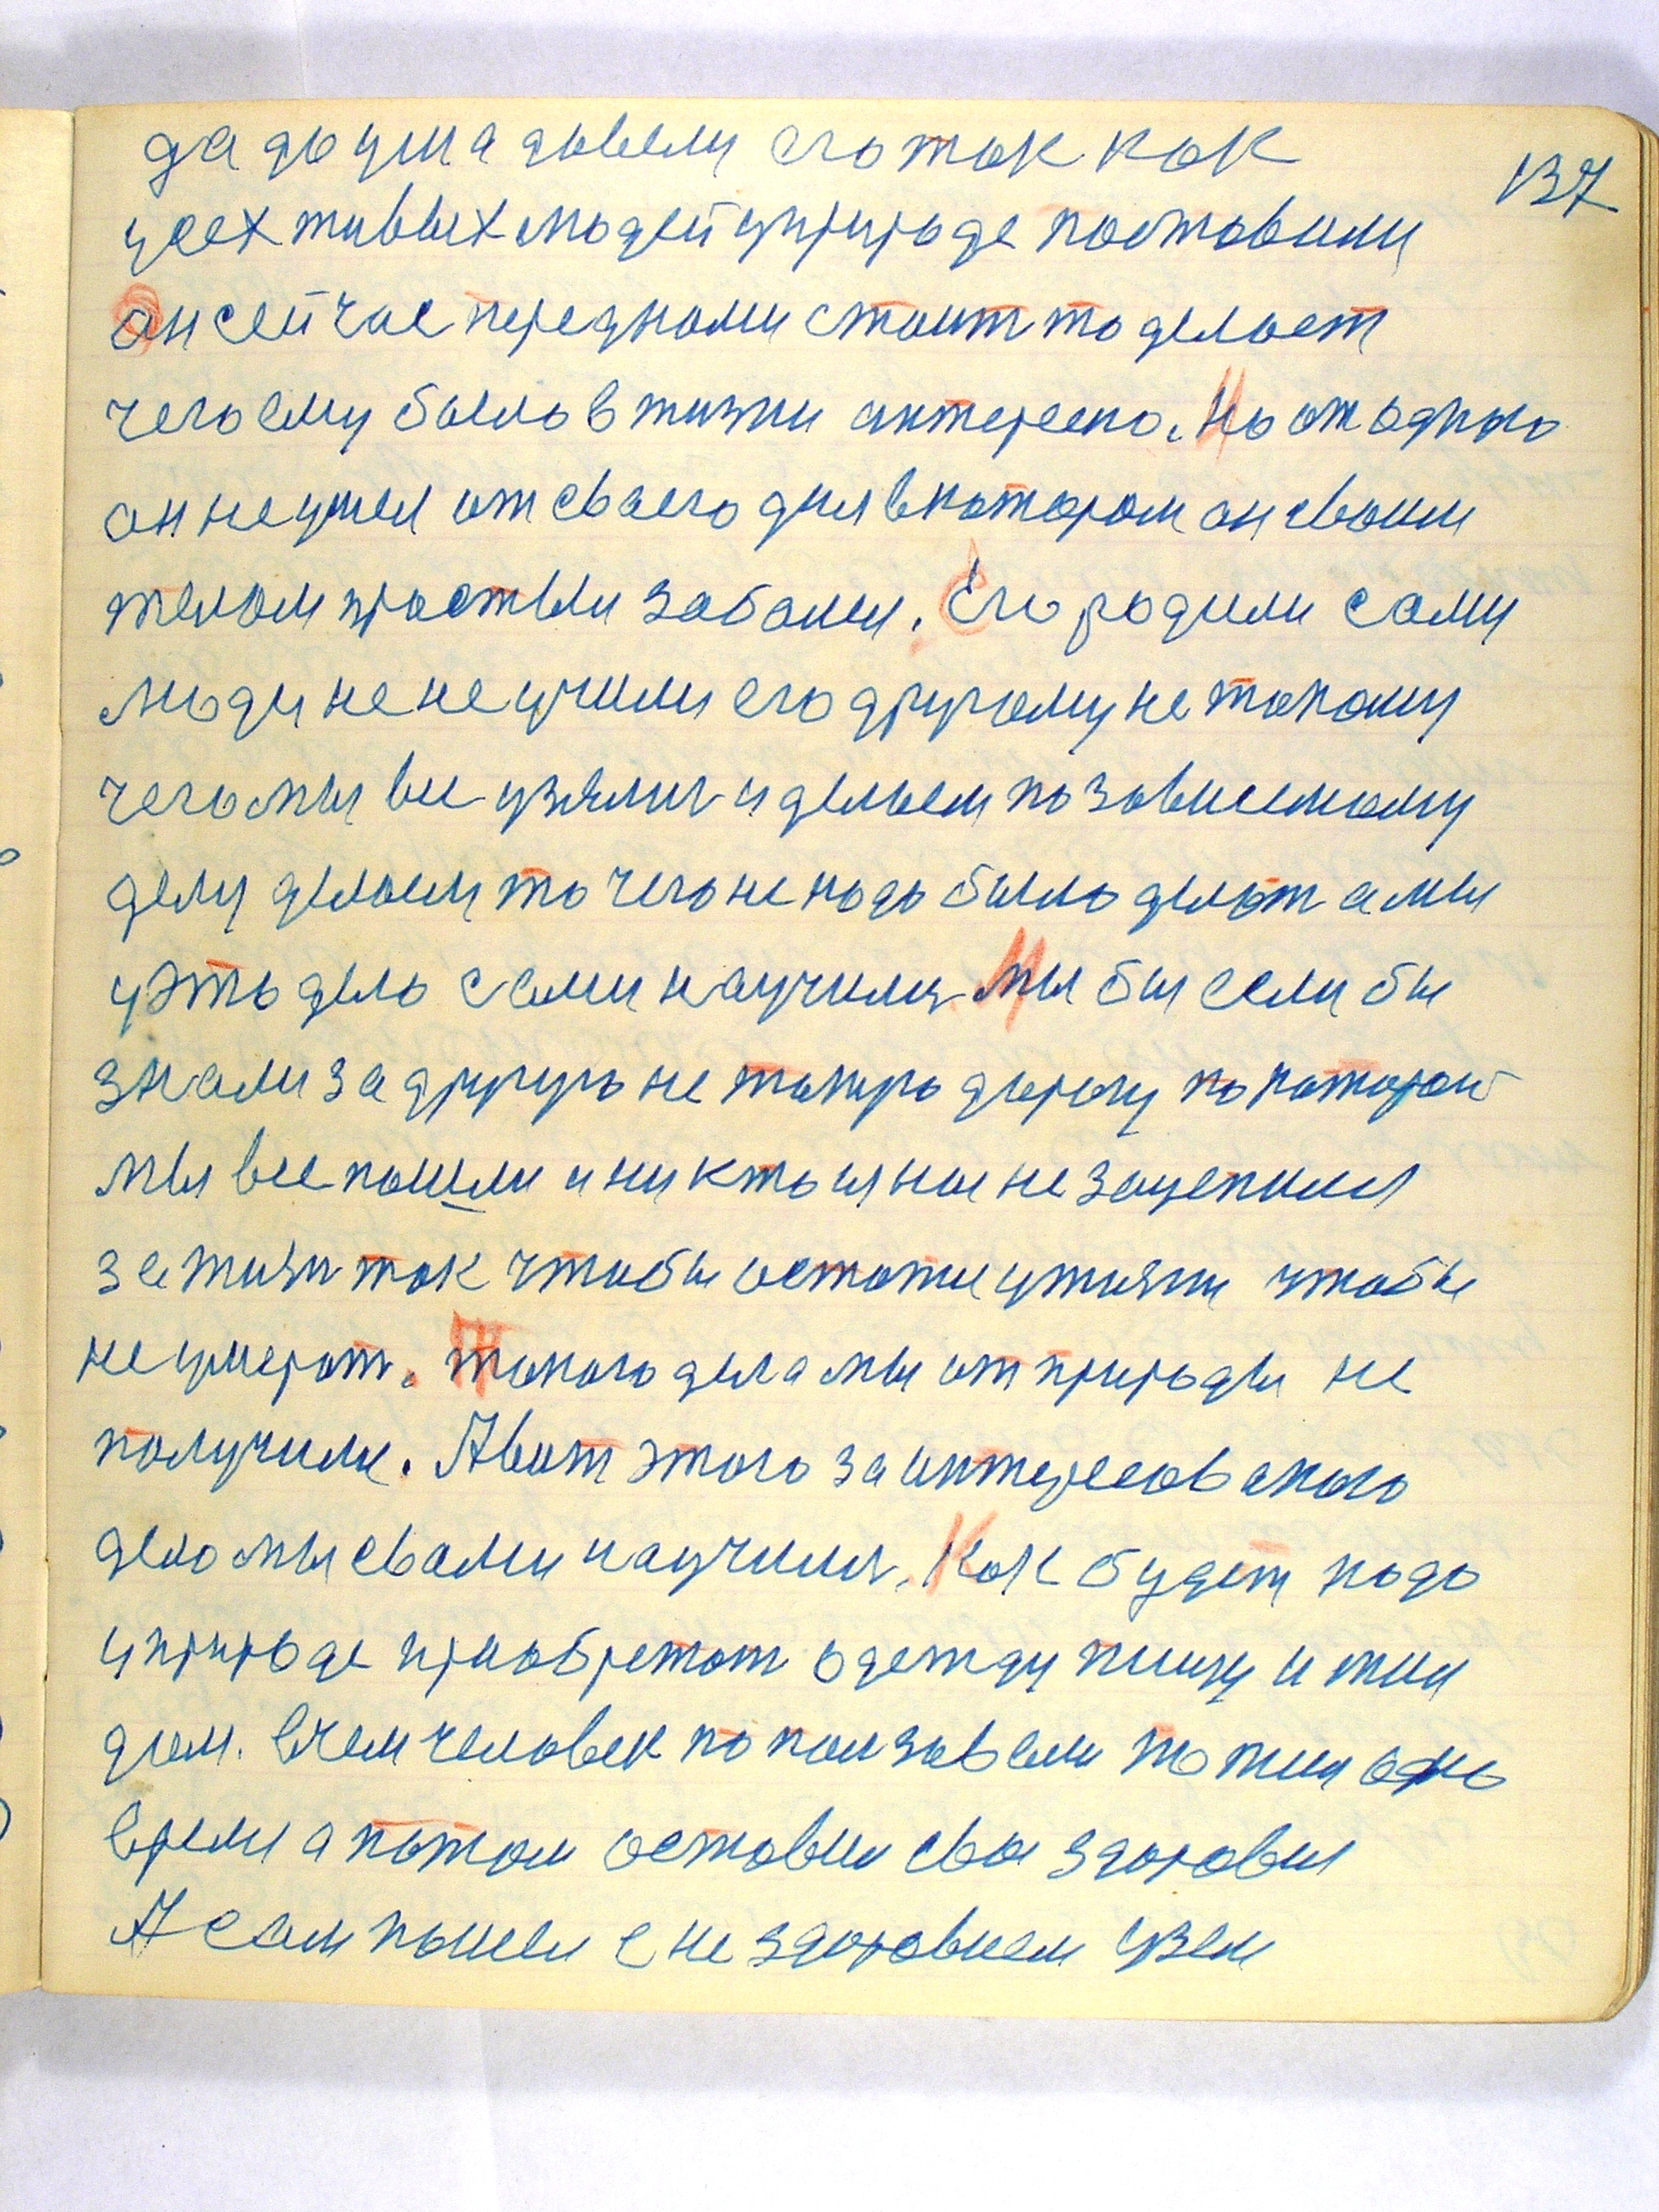 137
да доума довели его так как
усех живых людей уприроде поставили
он сейчас переднами стоит то делает
чего ему было в жизни интересно. Но от одного
он не ушел от своего дня в котором он своим
телом простыл заболел. Его родили сами
люди не не учили его другому не такому
чего мы все узялись и делаем по зависемому
делу делаем то чего не надо было делат а мы
у это дело сами научили. Мы бы если бы
знали за другую не такую дорогу по каторой
мы все пошли и никто из нас не зацепился
за жизн так чтобы остатся ужизни чтобы
не умерат. Такого дела мы от природы не
получили. А вот этого заинтересованого
дело мы свами научились. Как будет надо
уприроде приобретат одежду пищу и жил
дом. Вчем человек попользовалси пожил одно
время а потом оставил свое здоровия
А сам пошел с не здоровием узял